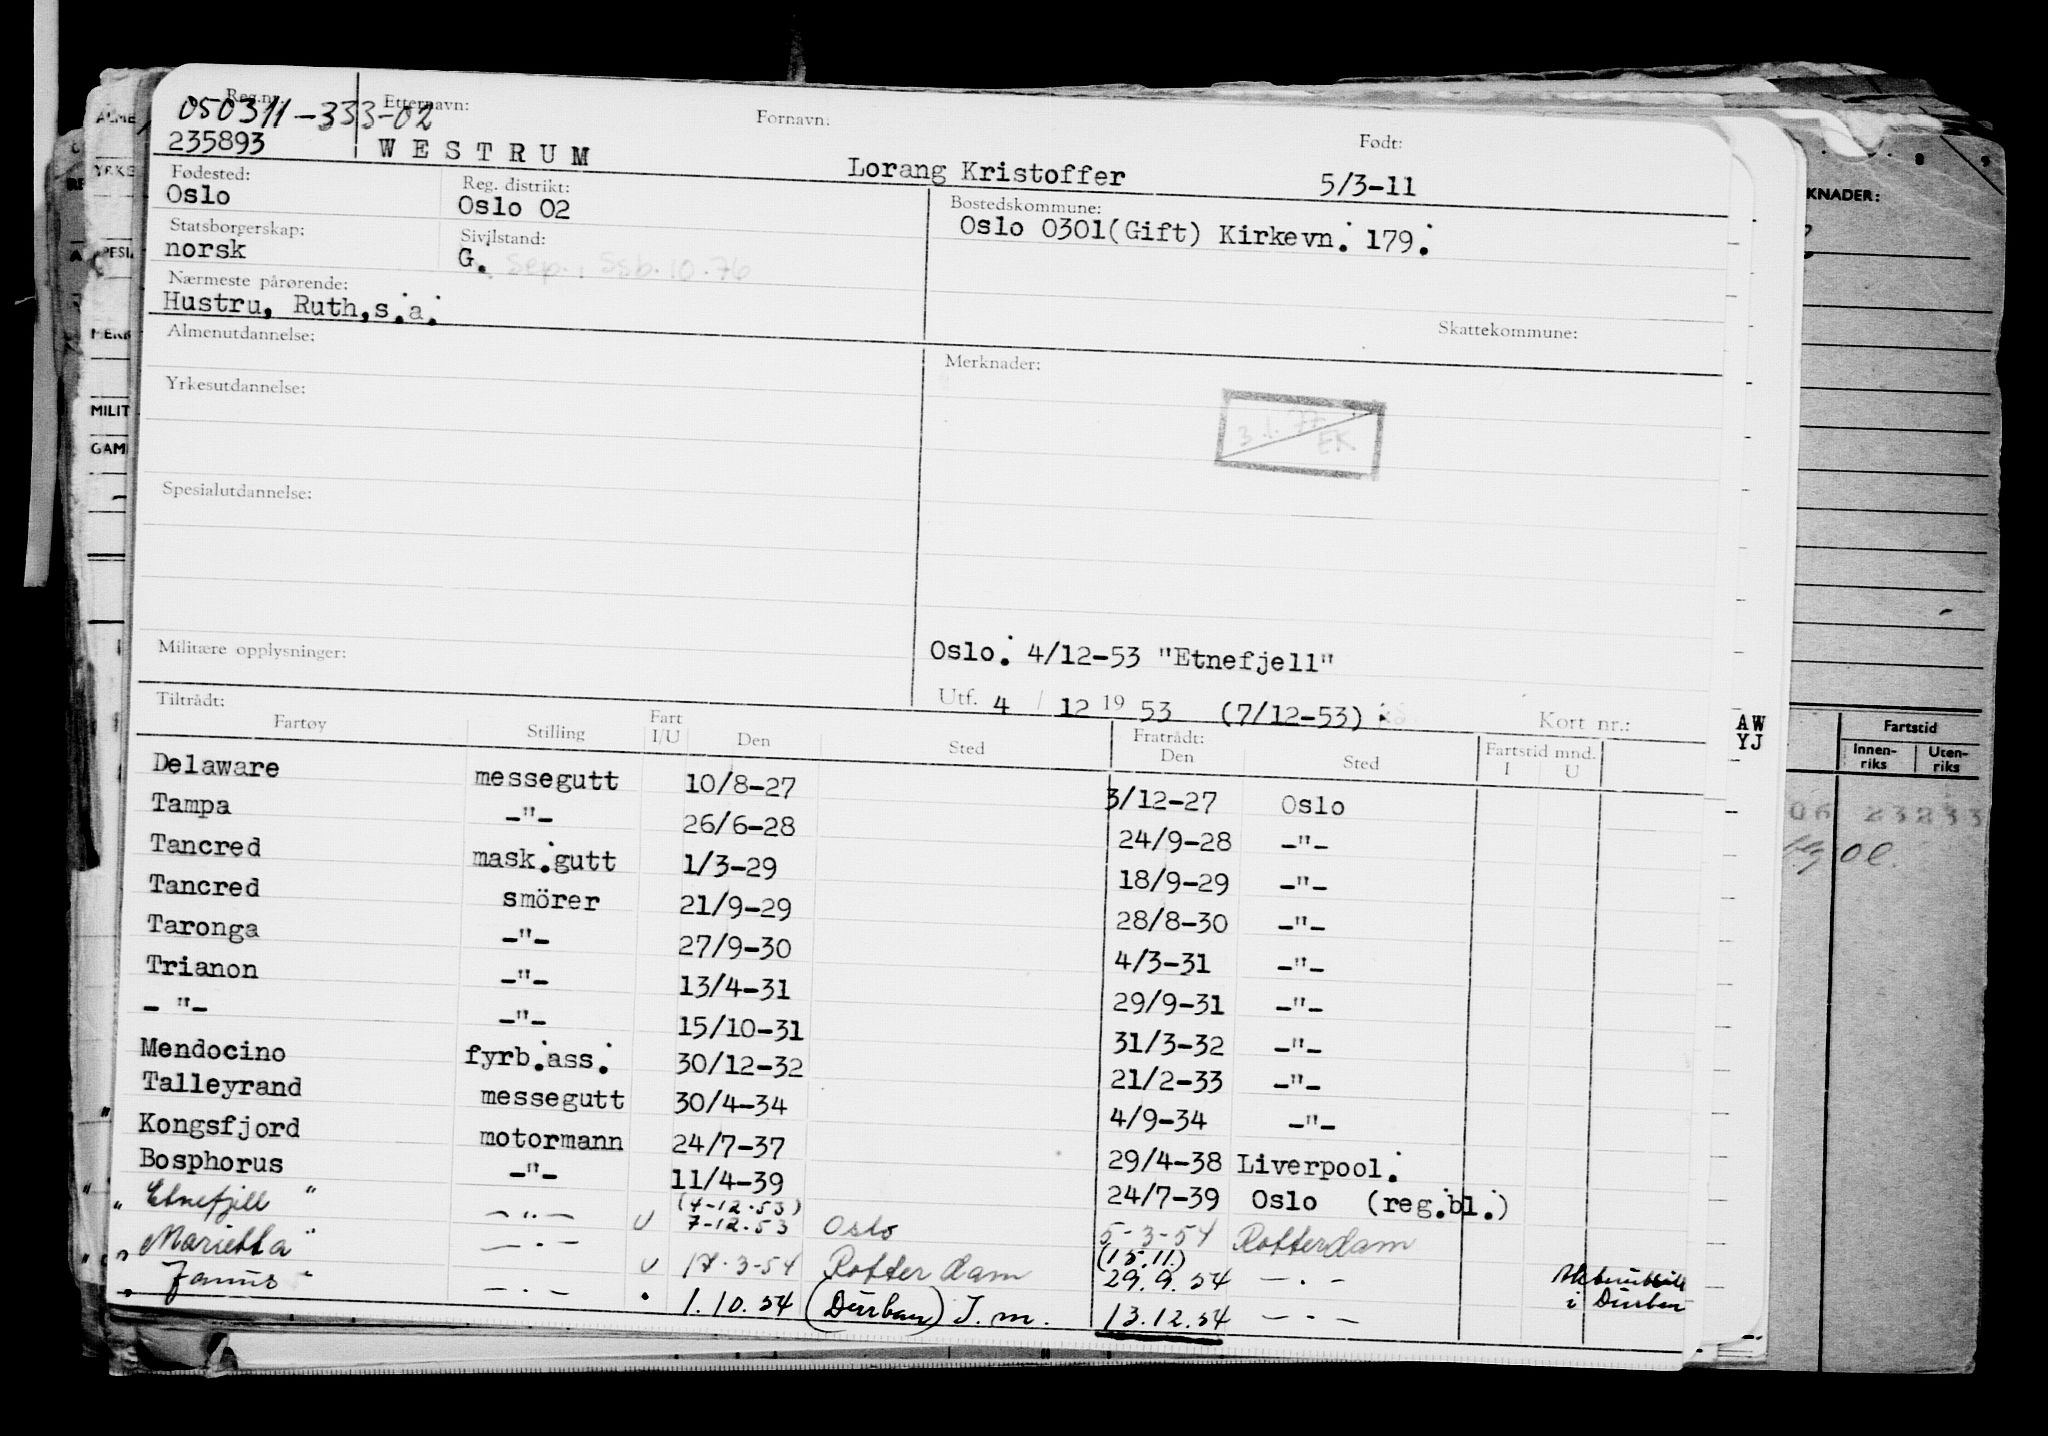 Reg.nr. Etternavn: Fornavn: Født:
050311-333-02
235893 WESTRUM Lorang Kristoffer 5/3-11
Fødested: Reg. distrikt: Bostedskommune:
Oslo Oslo 02 Oslo 0301(Gift) Kirkevn. 179.
Statsborgerskap: Sivilstand:
norsk G. Sep., Ssb. 10.76
Nærmeste pårørende:
Hustru, Ruth,s.a.
Skattekommune:
Almenutdannelse: Merknader:
Yrkesutdannelse:
3.1.77 EK.
Spesialutdannelse:
Militære opplysninger: Oslo. 4/12-53 "Etnefjell"
Utf. 4 / 12 19 53 (7/12-53) Kort nr.:
Tiltrådt: Fratrådt:
Fartøy Stilling Fart I/U Den Sted Den Sted Fartstid mnd. I U
Delaware messegutt 10/8-27 3/12-27 Oslo
Tampa -"- 26/6-28 24/9-28 -"-
Tancred mask.gutt 1/3-29 18/9-29 -"-
Tancred smörer 21/9-29 28/8-30 -"-
Taronga -"- 27/9-30 4/3-31 -"-
Trianon -"- 13/4-31 29/9-31 -"-
- "- -"- 15/10-31 31/3-32 -"-
Mendocino fyrb.ass. 30/12-32 21/2-33 -"-
Talleyrand messegutt 30/4-34 4/9-34 -"-
Kongsfjord motormann 24/7-37 29/4-38 Liverpool.
Bosphorus -"- 11/4-39 24/7-39 Oslo (reg.bl.)
(4-12.53)
"Etnefjell" -"- U 7-12.53 Oslo 5-3-54 Rotterdam
(15.11.)
"Marietta" -"- U 17.3-54 Rotterdam 29.9.54 -"-
i Durban
"Janus" -"- 1.10.54 (Durban) J.m. 13.12.54 -"-
KNADER:
AW
YJ
Fartstid
Innen-
riks
Uten-
riks
ALME
YRKE
MERK
MILIT
GAM